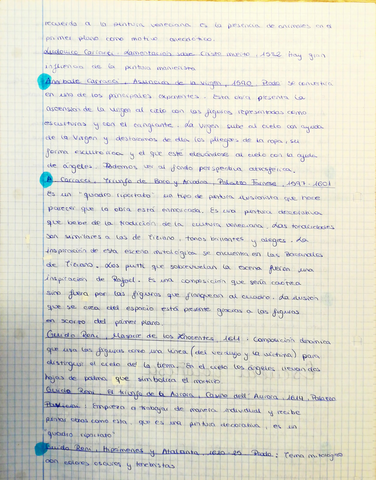 recuerdo a la pintura veneciana es la presencia de animales en el
primer plano como motivo anecdótico.
Ludovico Carracci. Lamentación sobre Cristo muerto, 1582 hay gran
influencia de la pintura manierista
Annibale Carracci. Asunción de la Virgen, 1590. Prado se convertirá
en uno de los principales exponentes. Esta obra presenta la
ascensión de la virgen al cielo con las figuras representadas como
esculturas y con el sangrante. La virgen sube al cielo con ayuda
de la Virgen y destacamos de ellas los pliegues de la ropa, su
forma escultórica y el que esté elevándose al cielo con la ayuda
de ángeles. Podemos ver al fondo perspectiva atmosférica.
A. Carracci, Triunfo de Baco y Ariadna, Palazzo Farnese, 1597-1601
es un "quadro riportato", un tipo de pintura ilusionista que hace
parecer que la obra está enmarcada. Es una pintura decorativa
que bebe de la tradición de la cultura veneciana. Las tonalidades
son similares a las de Tiziano, tonos brillantes y alegres. La
inspiración de esta escena mitológica se encuentra en las Bacanales
de Tiziano. Los putti que sobrevuelan la escena
inspiración de Rafael. Es una composición que sería caótica
sino fuera por las figuras que franquean al cuadro. La ilusión
que se crea del espacio está presente gracias a las figuras
en escorzo del primer plano.
Guido Reni, Masacre de los Inocentes, 1611: Composición dinámica
que usa las figuras como una línea (del verdugo y la víctima) para
distinguir el cielo de la tierra. En el cielo los ángeles llevan dos
hojas de palma que simboliza el martirio.
Guido Reni, El triunfo de la Aurora, Casino dell' Aurora, 1614, Palazzo
Pallavicini: Empieza a trabajar de manera individual y recibe
obras como esta, que es una pintura decorativa, es un
quadro riportato"
Guido Reni, Hipómenes y Atalanta, 1620-25 Prado: Tema mitológico
con colores oscuros y tenebristas